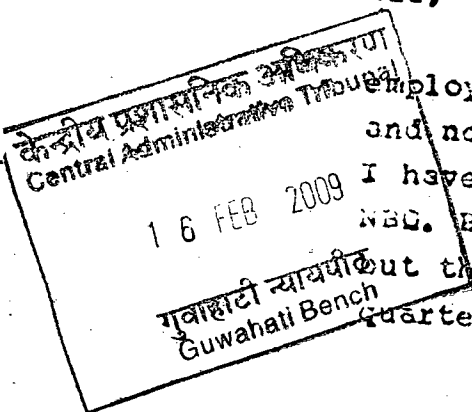 केन्द्रीय प्रशासनिक अधिकरण
Central Administrative Tribunal
16 FEB 2009
गुवाहाटी न्यायपीठ
Guwahati Bench
employ
and no
I have
NBQ.
out th
Quarte